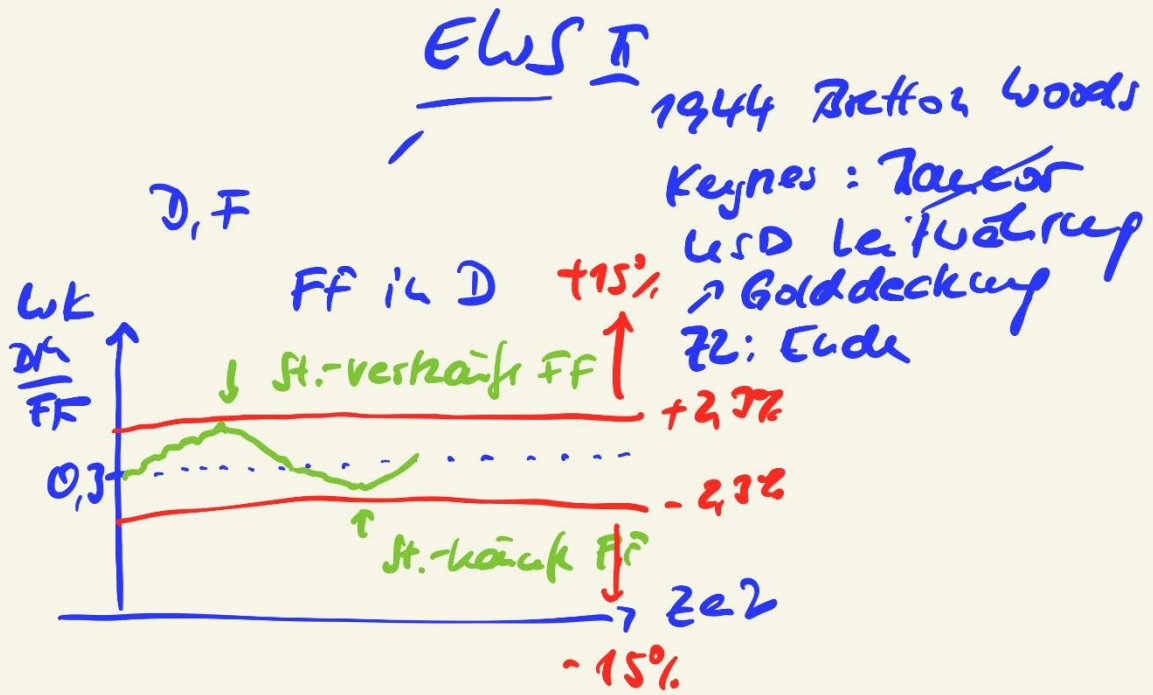 EWS II
1944 Bretton Woods
Keynes : Bancor
USD Leitwährung
↗ Golddeckung
72: Ende
D, F
FF in D
+15%
WK
DM
FF
St.-verkäufe FF
+2,3%
0,3
-2,3%
St.-käufe FF
Zeit
-15%